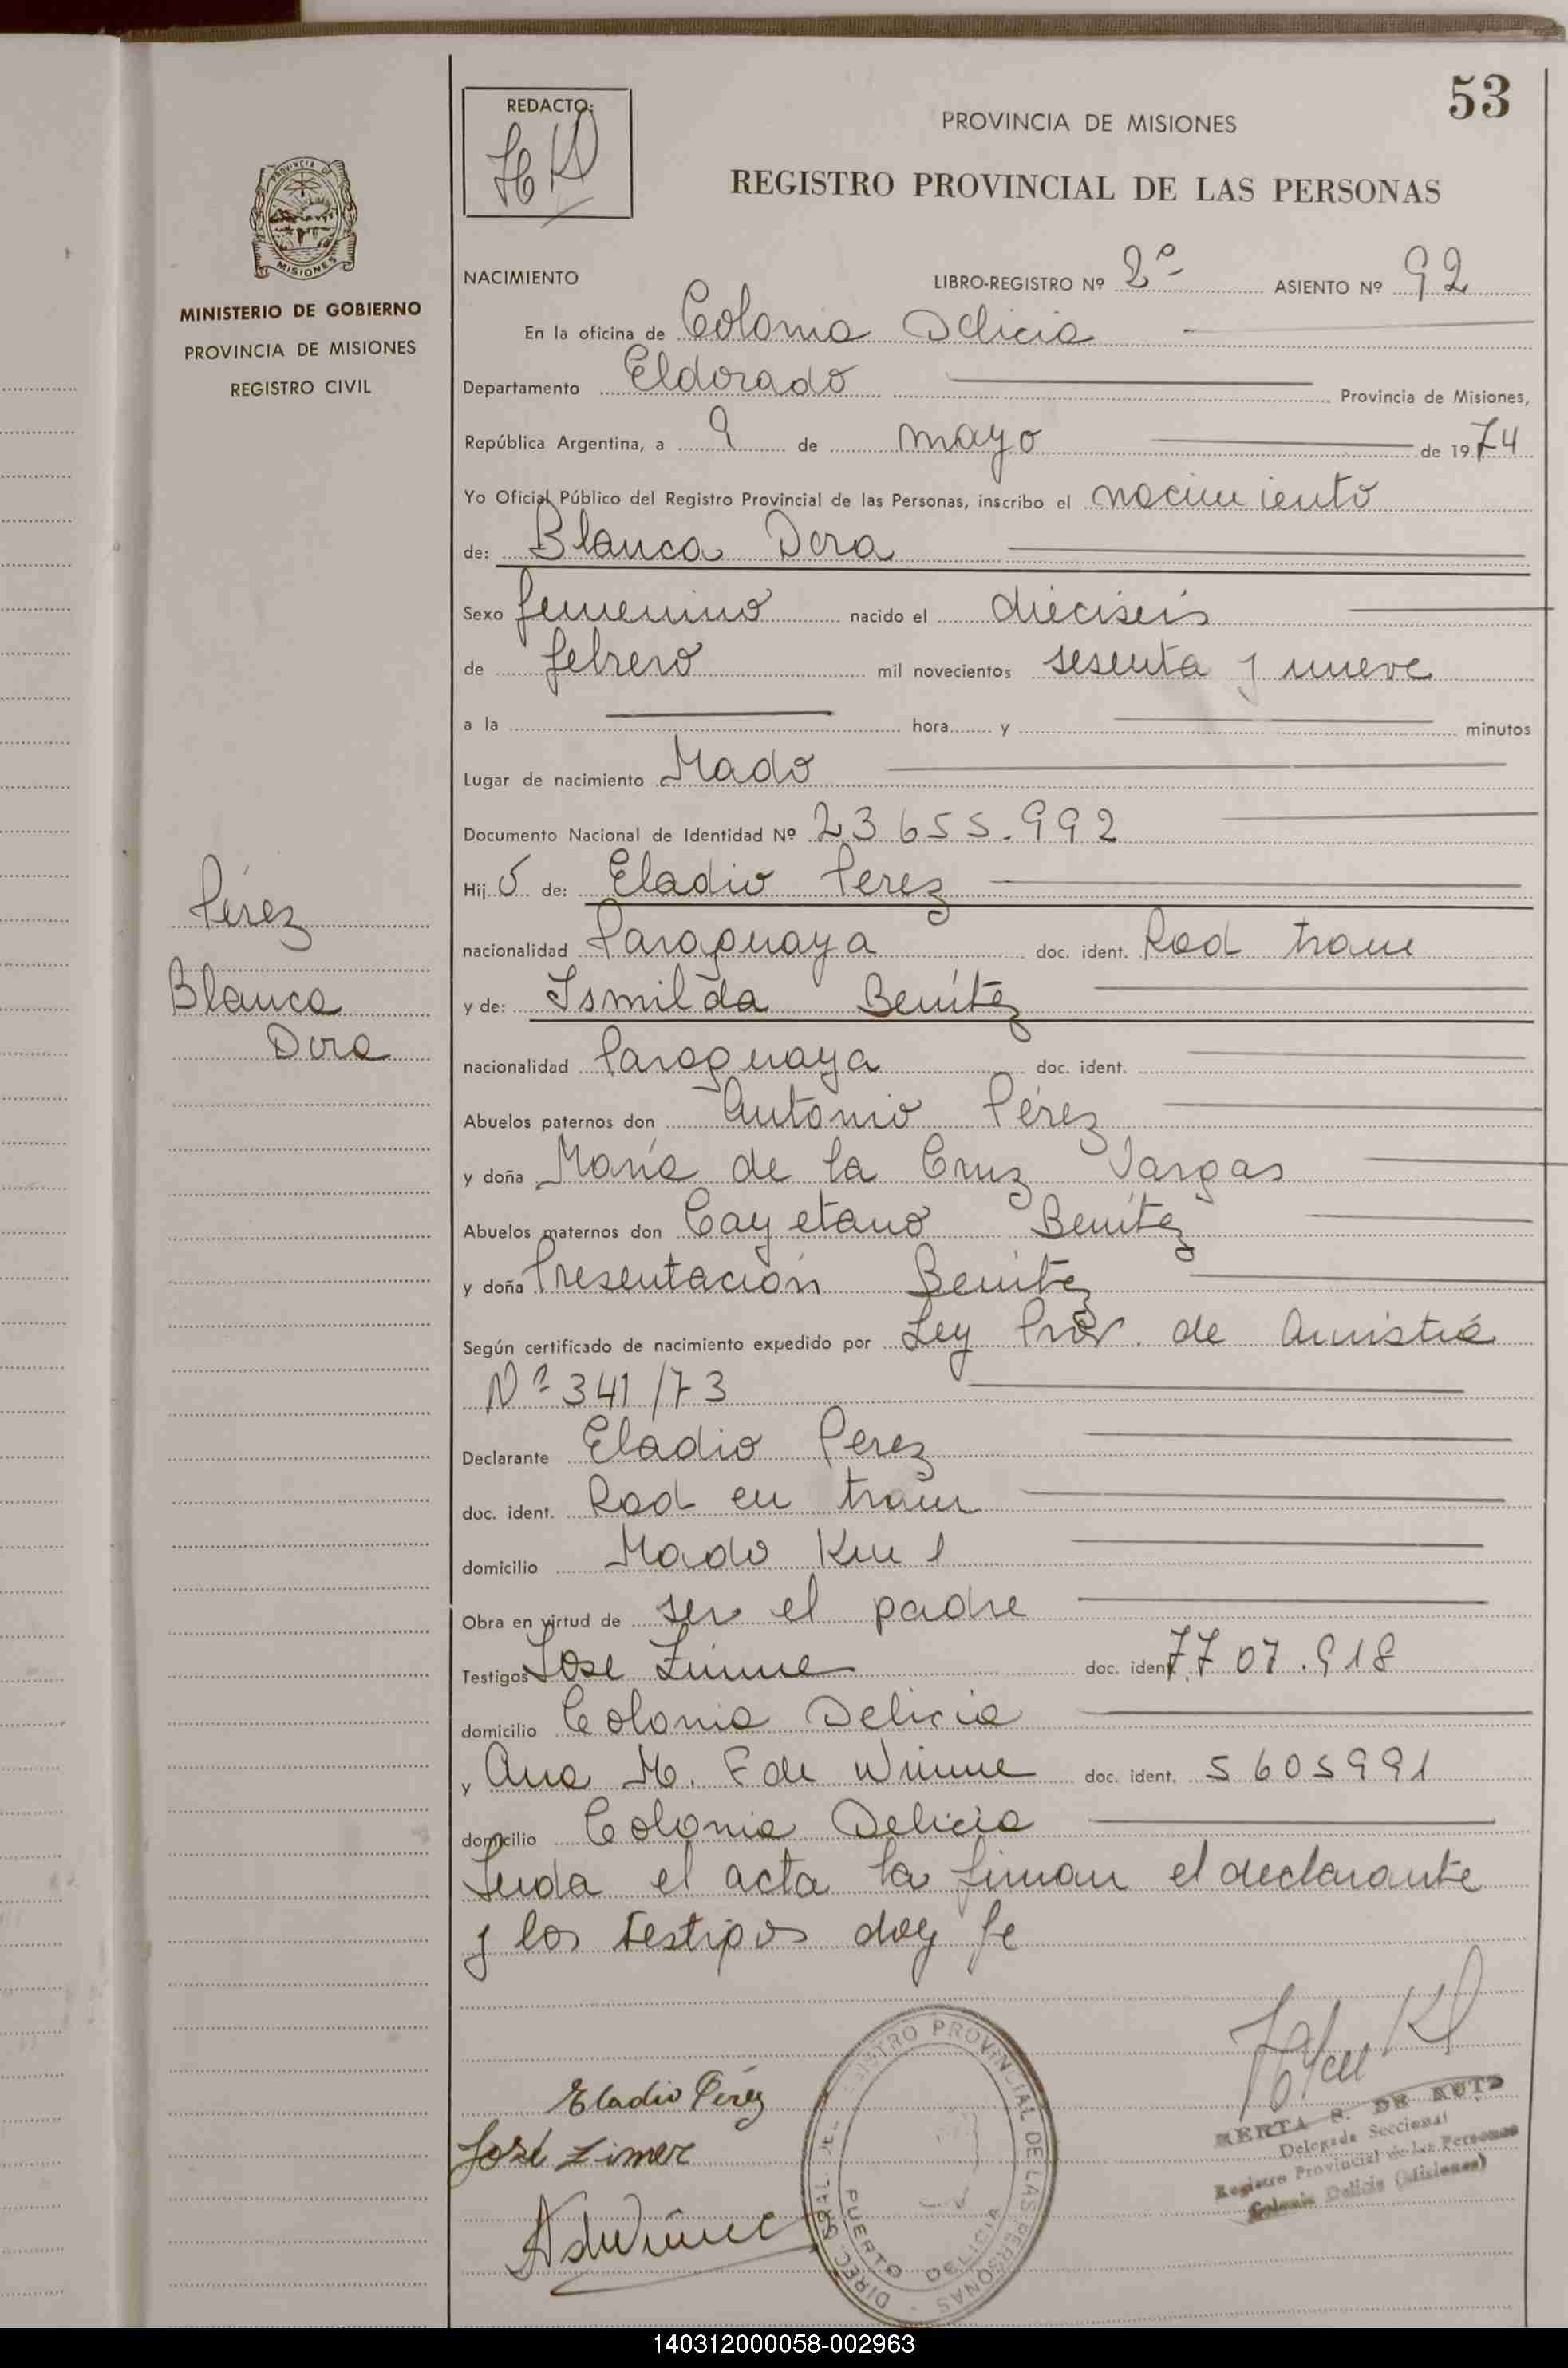 53
REDACTO:
PROVINCIA DE MISIONES
REGISTRO PROVINCIAL DE LAS PERSONAS
PROVINCIA DE
MISIONES
MINISTERIO DE GOBIERNO
PROVINCIA DE MISIONES
REGISTRO CIVIL
NACIMIENTO LIBRO-REGISTRO Nº 2º ASIENTO Nº 92
En la oficina de Colonia Delicia
Departamento Eldorado Provincia de Misiones,
República Argentina, a 9 de mayo de 1974
Yo Oficial Público del Registro Provincial de las Personas, inscribo el nacimiento
de: Blanca Dora
Sexo femenino nacido el dieciseis
de febrero mil novecientos sesenta y nueve
a la hora y minutos
Lugar de nacimiento Mado
Documento Nacional de Identidad Nº 23655.992
Hij o de: Eladio Perez
Pérez
nacionalidad Paraguaya doc. ident. Rad tram
Blanca
y de: Ismilda Benítez
Dora
nacionalidad Paraguaya doc. ident.
Abuelos paternos don Antonio Pérez
y doña María de la Cruz Vargas
Abuelos maternos don Cayetano Benítez
y doña Presentación Benitez
Según certificado de nacimiento expedido por Ley Prov. de Amistía
Nº 341/73
Declarante Eladio Perez
doc. ident. Rad en tram
domicilio Mado Km 1
Obra en virtud de ser el padre
Testigos Jose Zimme doc. ident. 7.707.918
domicilio Colonia Delicia
y Ana M. F de Wimme doc. ident. 5605991
domicilio Colonia Delicia
Leida el acta la firman el declarante
y los testigos doy fe
Eladio Pérez
José Zimer
DIREC. GRAL. DEL REGISTRO PROVINCIAL DE LAS PERSONAS
PUERTO DELICIA
BERTA S. DE
Delegada Seccional
Registro Provincial de las Personas
Colonia Delicia (Misiones)
140312000058-002963